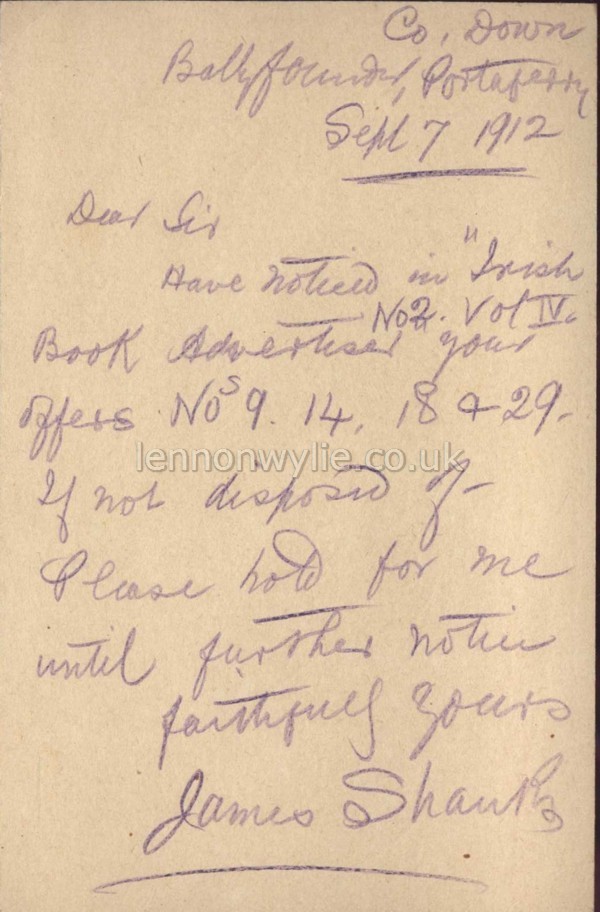 Co, Down
Ballyfounder, Portaferry
Sept 7 1912
Dear Sir
Have noticed in "Irish
No 2. Vol IV.
Book Advertiser your
offers Nos 9. 14, 18 & 29.
lennonwylie.co.uk
If not disposed of-
Please hold for me
until further notice
faithfully yours
James Shanks